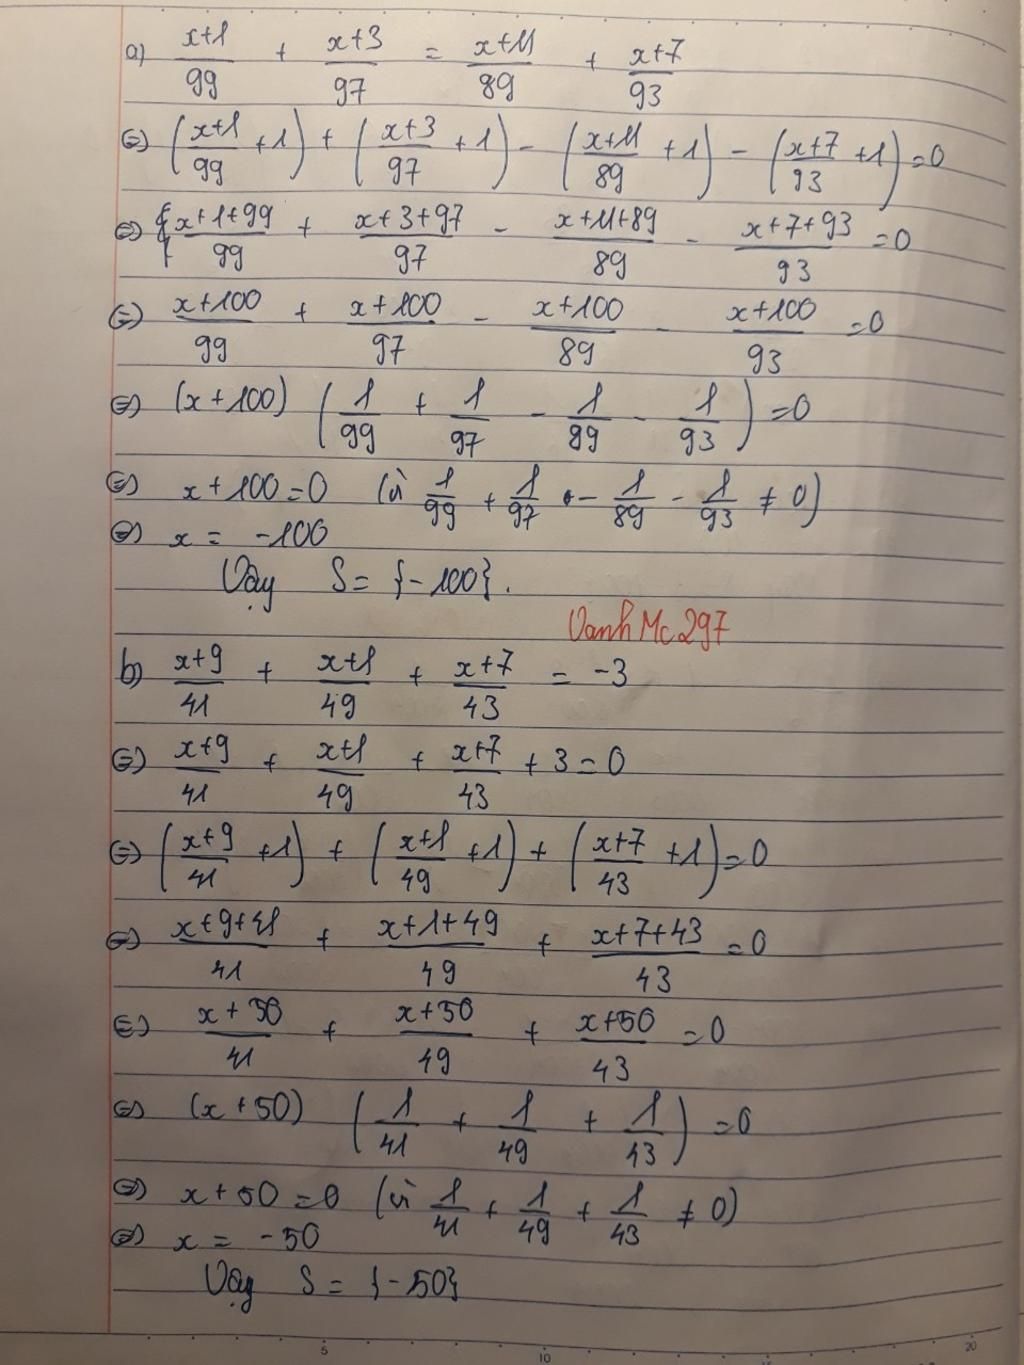 a) (x+1)/99 + (x+3)/97 = (x+11)/89 + (x+7)/93
⇔ ((x+1)/99 + 1) + ((x+3)/97 + 1) - ((x+11)/89 + 1) - ((x+7)/93 + 1) = 0
⇔ (x+1+99)/99 + (x+3+97)/97 - (x+11+89)/89 - (x+7+93)/93 = 0
⇔ (x+100)/99 + (x+100)/97 - (x+100)/89 - (x+100)/93 = 0
⇔ (x+100) (1/99 + 1/97 - 1/89 - 1/93) = 0
⇔ x+100=0 (vì 1/99 + 1/97 - 1/89 - 1/93 ≠ 0)
⇔ x = -100
Vậy S = {-100}.
Vanh Mc 297
b) (x+9)/41 + (x+1)/49 + (x+7)/43 = -3
⇔ (x+9)/41 + (x+1)/49 + (x+7)/43 + 3 = 0
⇔ ((x+9)/41 + 1) + ((x+1)/49 + 1) + ((x+7)/43 + 1) = 0
⇔ (x+9+41)/41 + (x+1+49)/49 + (x+7+43)/43 = 0
⇔ (x+50)/41 + (x+50)/49 + (x+50)/43 = 0
⇔ (x+50) (1/41 + 1/49 + 1/43) = 0
⇔ x+50=0 (vì 1/41 + 1/49 + 1/43 ≠ 0)
⇔ x = -50
Vậy S = {-50}
5 10 20